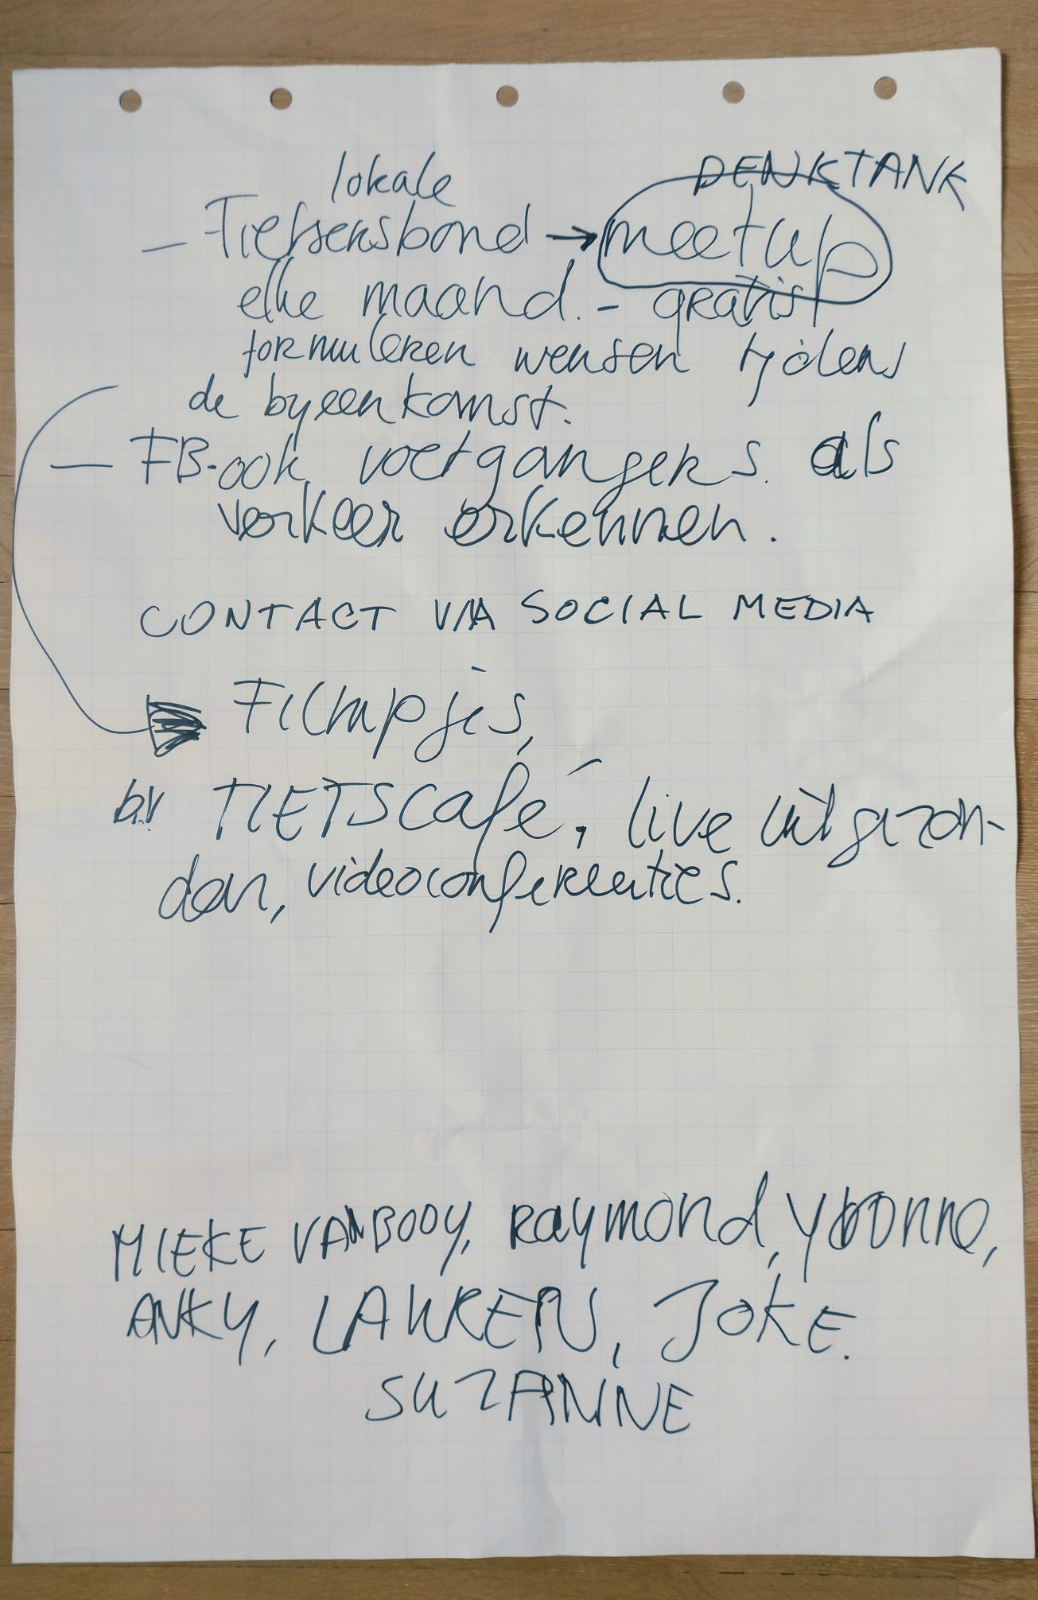 lokale DENKTANK
- Fietsersbond → meetup
elke maand. - gratis
formuleren wensen tijdens
de byeenkomst.
- FB-ook voetgangers. als
verkeer erkennen.
CONTACT VIA SOCIAL MEDIA
Filmpjes,
bv FIETSCafé, live uitgezon-
den, videoconferenties.
MIEKE VANBOOY, Raymond, Yvonne,
ANKY, LAURENS, JOKE.
SUZANNE